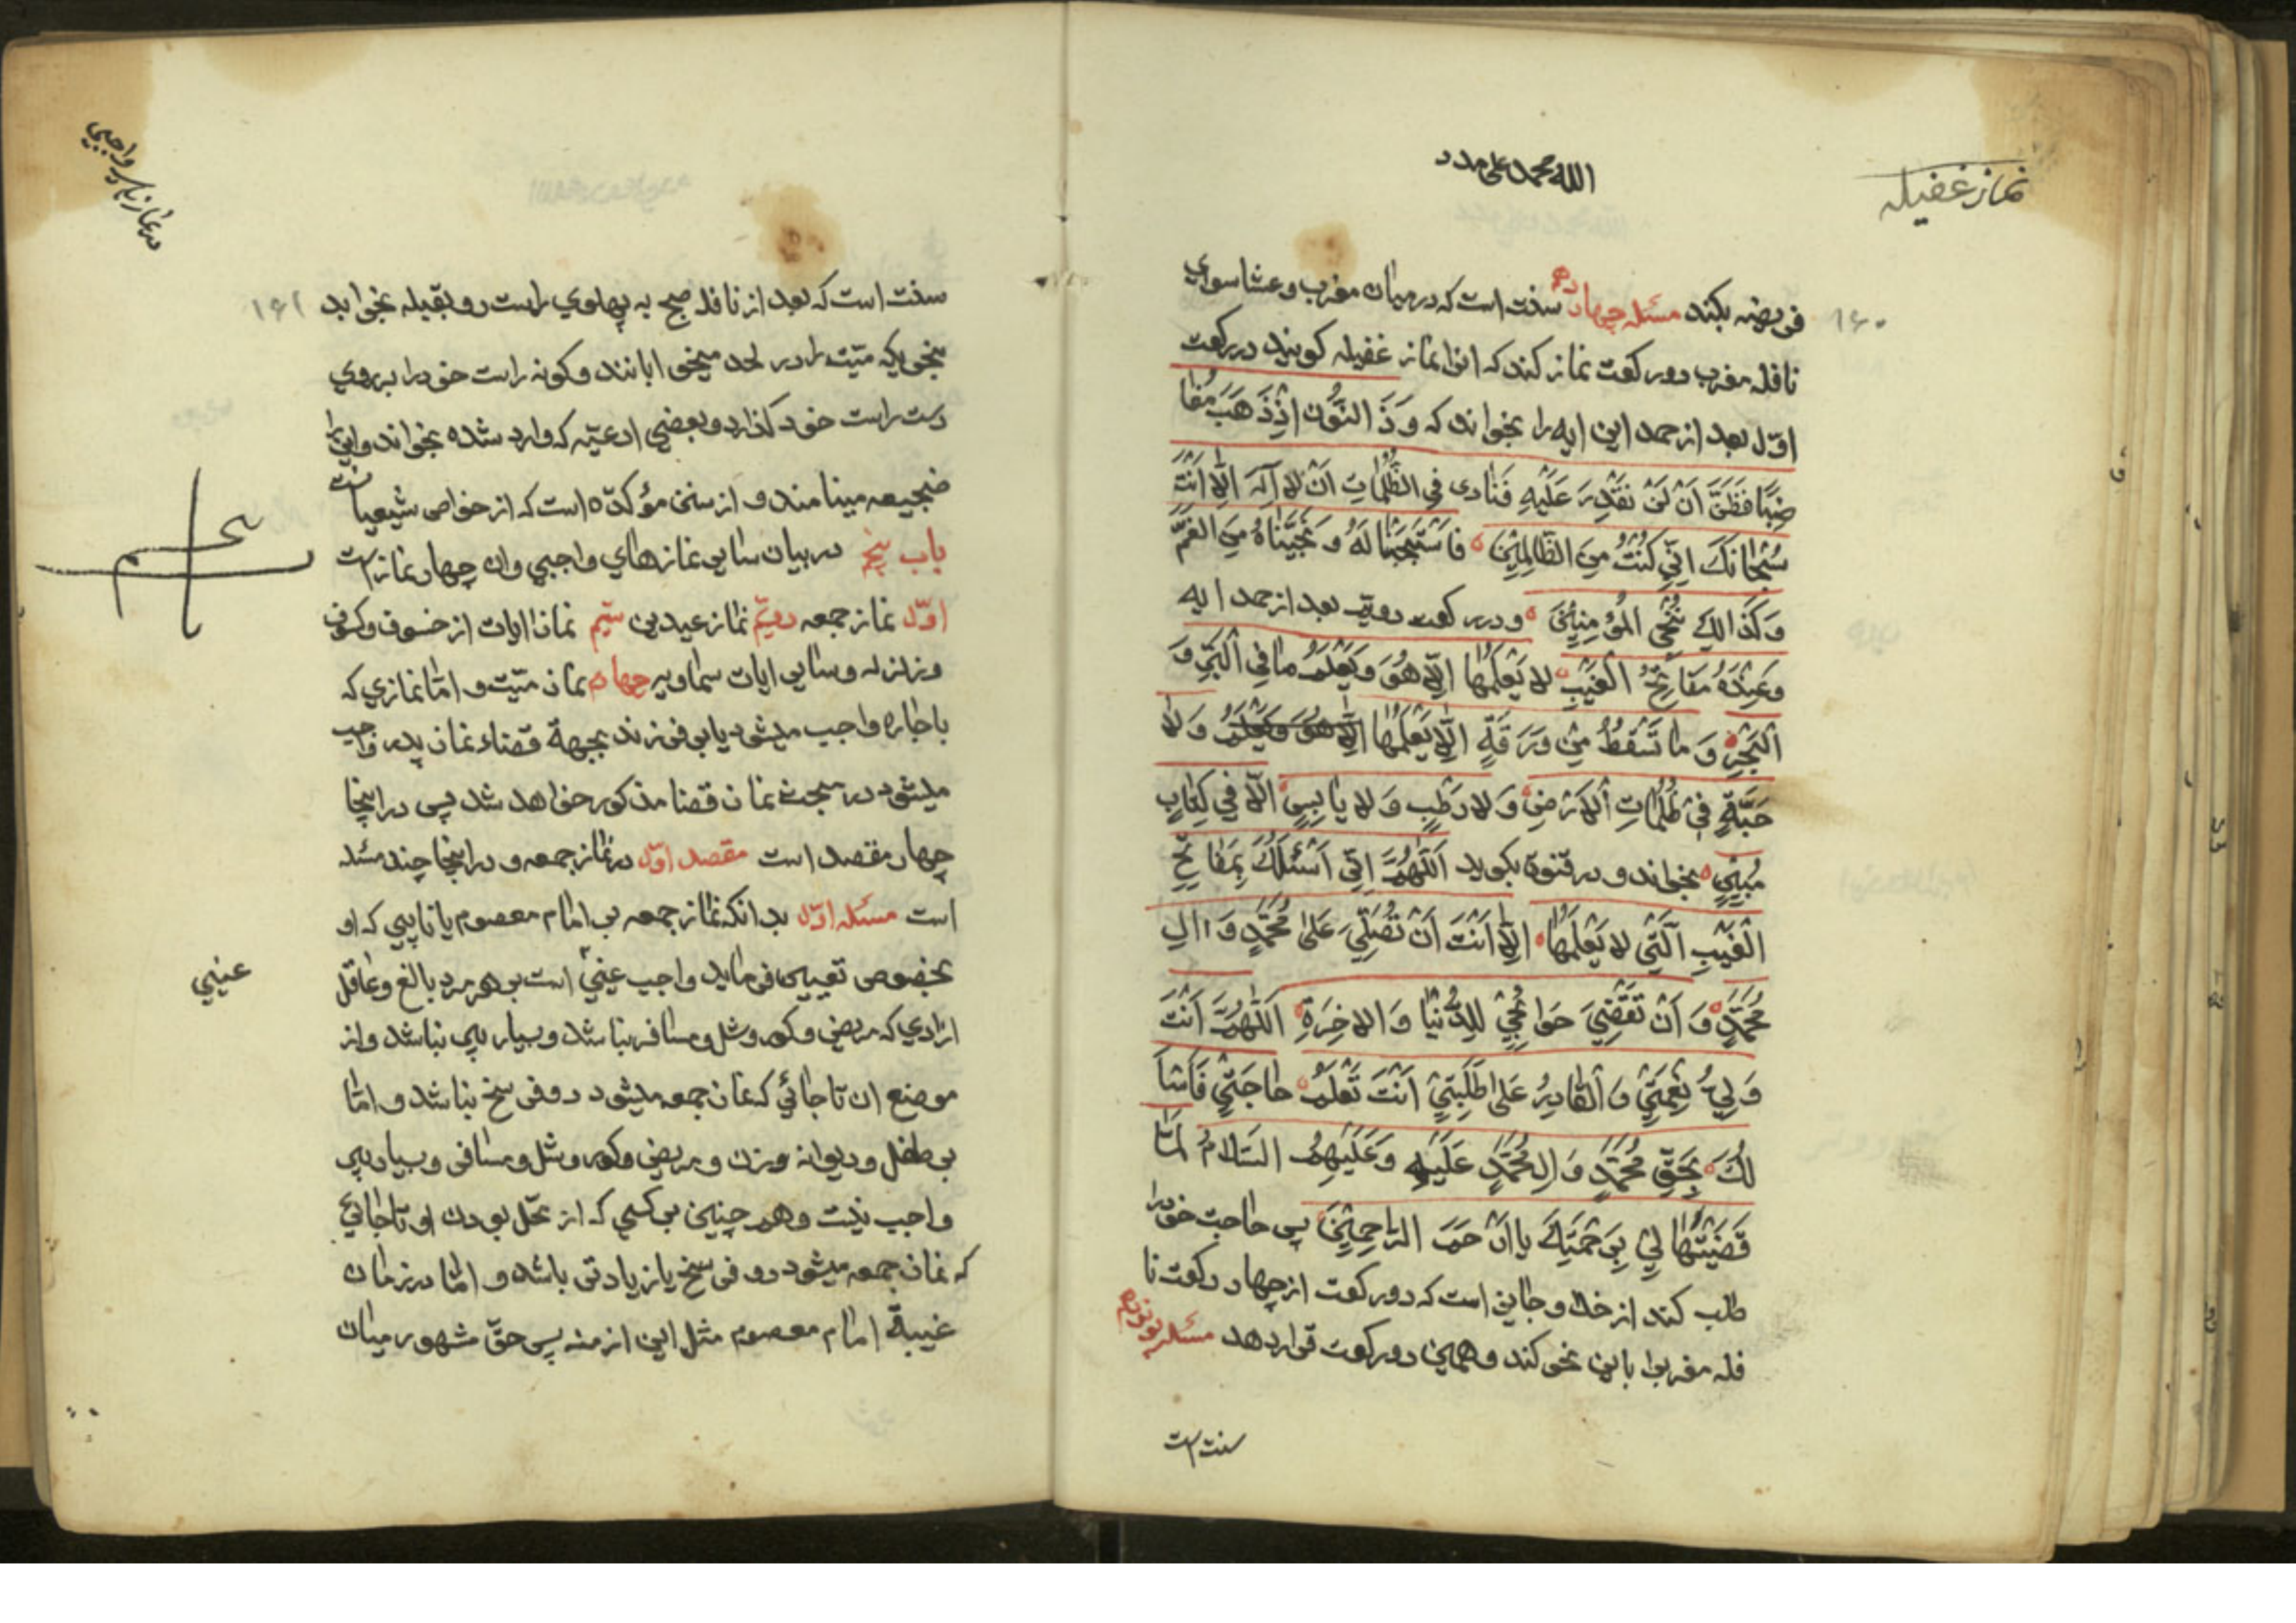 نماز غفیله
الله محمد علی مدد
۱۶۰
فریضه بکند مسئله چهاردهم سنت است که در میان مغرب و عشا سوای
نافله مغرب دو رکعت نماز کند که انرا نماز غفیله کویند در رکعت
اوّل بعد از حمد این ایه را بخواند که وَذَ النُّون اِذْ ذَهَبَ مُغا
ضِبًا فَظَنَّ اَنْ لَنْ نَقْدِرَ عَلَیْهِ فَنادی فِی الظُّلُماتِ اَنْ لا اِلهَ اِلّا اَنْتَ
سُبْحانَكَ اِنّی كُنْتُ مِنَ الظّالِمینَ فاسْتَجَبْنا لَهُ وَ نَجَّیْناهُ مِنَ الغَمِّ
وَ كَذالِكَ نُنْجِی المُؤْمِنینَ و در رکعت دویّم بعد از حمد ایه
وَعِنْدَهُ مَفاتِحُ الْغَیْبِ لا یَعْلَمُها اِلّا هُوَ وَیَعْلَمُ ما فِی الْبَرِّ وَ
الْبَحْرِ وَ ما تَسْقُطُ مِنْ وَرَقَةٍ اِلّا یَعْلَمُها اِلّا هُوَ وَیَعْلَمُ وَ لا
حَبَّةٍ فی ظُلُماتِ الْاَرْضِ وَ لا رَطْبٍ وَ لا یابِسٍ اِلّا فی كِتابٍ
مُبینٍ بخواند و در قنوة بکوید اَللّهُمَّ اِنّی اَسْئَلُكَ بِمَفاتِحِ
الْغَیْبِ الَّتی لا یَعْلَمُها اِلّا اَنْتَ اَنْ تُصَلِّیَ عَلی مُحَمَّدٍ وَ الِ
مُحَمَّدٍ وَ اَنْ تَقْضِیَ حَوائِجی لِلدُّنْیا وَ الاخِرَةِ اَللّهُمَّ اَنْتَ
وَلِیُّ نِعْمَتی وَ الْقادِرُ عَلی طَلِبَتی اَنْتَ تَعْلَمُ حاجَتی فَاَسْاَ
لُكَ بِحَقِّ مُحَمَّدٍ وَ الِ مُحَمَّدٍ عَلَیْهِ وَعَلَیْهِمُ السَّلامُ لَمّا
قَضَیْتَها لی بِرَحْمَتِكَ یا اَرْحَمَ الرّاحِمینَ پس حاجت خود را
طلب کند از خدا و جایز است که دو رکعت از چهار رکعت نا
فله مغرب را باین نحو کند و همین دو رکعت قرار دهد مسئله پونزدهم
سنت است
در نماز های واجبی
۱۶۱
سنت است که بعد از نافله صبح به پهلوی راست رو بقبله بخوابد
بنحویکه میّت را در لحد میخوابانند و کونه راست خود را بر روی
دست راست خود کذارد و بعضی ادعیّه که وارد شده بخواند و این را
ضجیعه مینامند و از سنن مؤکدّه است که از خواص شیعیا
باب پنجم در بیان سایر نمازهای واجبی وان چهار نماز است
اوّل نماز جمعه دویّم نماز عیدین سیّم نماز ایات از خسوف و کسوف
و زلزله و سایر ایات سماویه چهارم نماز میّت و امّا نمازی که
باجاره واجب میشود یا بر فرزند بجهة قضاء نماز پدر واجب
میشود در مبحث نماز قضا مذکور خواهد شد پس در اینجا
چهار مقصد است مقصد اوّل در نماز جمعه و در اینجا چند مسئله
است مسئله اوّل بدانکه نماز جمعه بر امام معصوم یا نایبی که او
بخصوص تعیین فرماید واجب عینیّ است بر هر مرد بالغ و عاقل
عینی
ازادی که مریض و کور و شل و مسافر نباشد و بسیار پیر نباشد و از
موضع ان تا جائی که نماز جمعه میشود دو فرسخ نباشد و امّا
بر طفل و دیوانه و زن و مریض و کور و شل و مسافر و بسیار پیر
واجب نیست و هم چنین بر کسی که از محّل بودن او تا جائی
که نماز جمعه میشود دو فرسخ یا زیادتر باشد و امّا در زمان
غیبة امام معصوم مثل این ازمنه پس حقّ مشهور میان